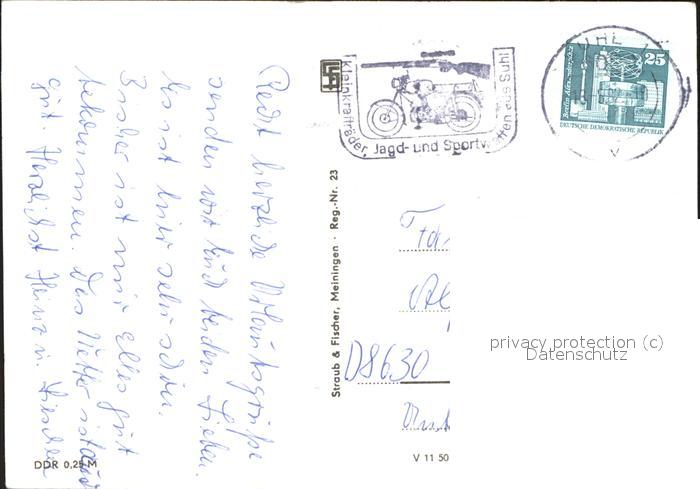 Recht herzliche Urlaubsgrüße
senden wir Euch beiden Lieben.
Es ist hier sehr schön.
Bisher ist mir alles gut
bekommen. Das Wetter ist auch
gut. Herzlichst Heinz u.
DDR 0,25 M
Straub & Fischer, Meiningen · Reg.-Nr. 23
V 11 50
Kleinkrafträder, Jagd- und Sportwaffen aus Suhl
25
Berlin Alexanderplatz
DEUTSCHE DEMOKRATISCHE REPUBLIK
D8630
privacy protection (c)
Datenschutz